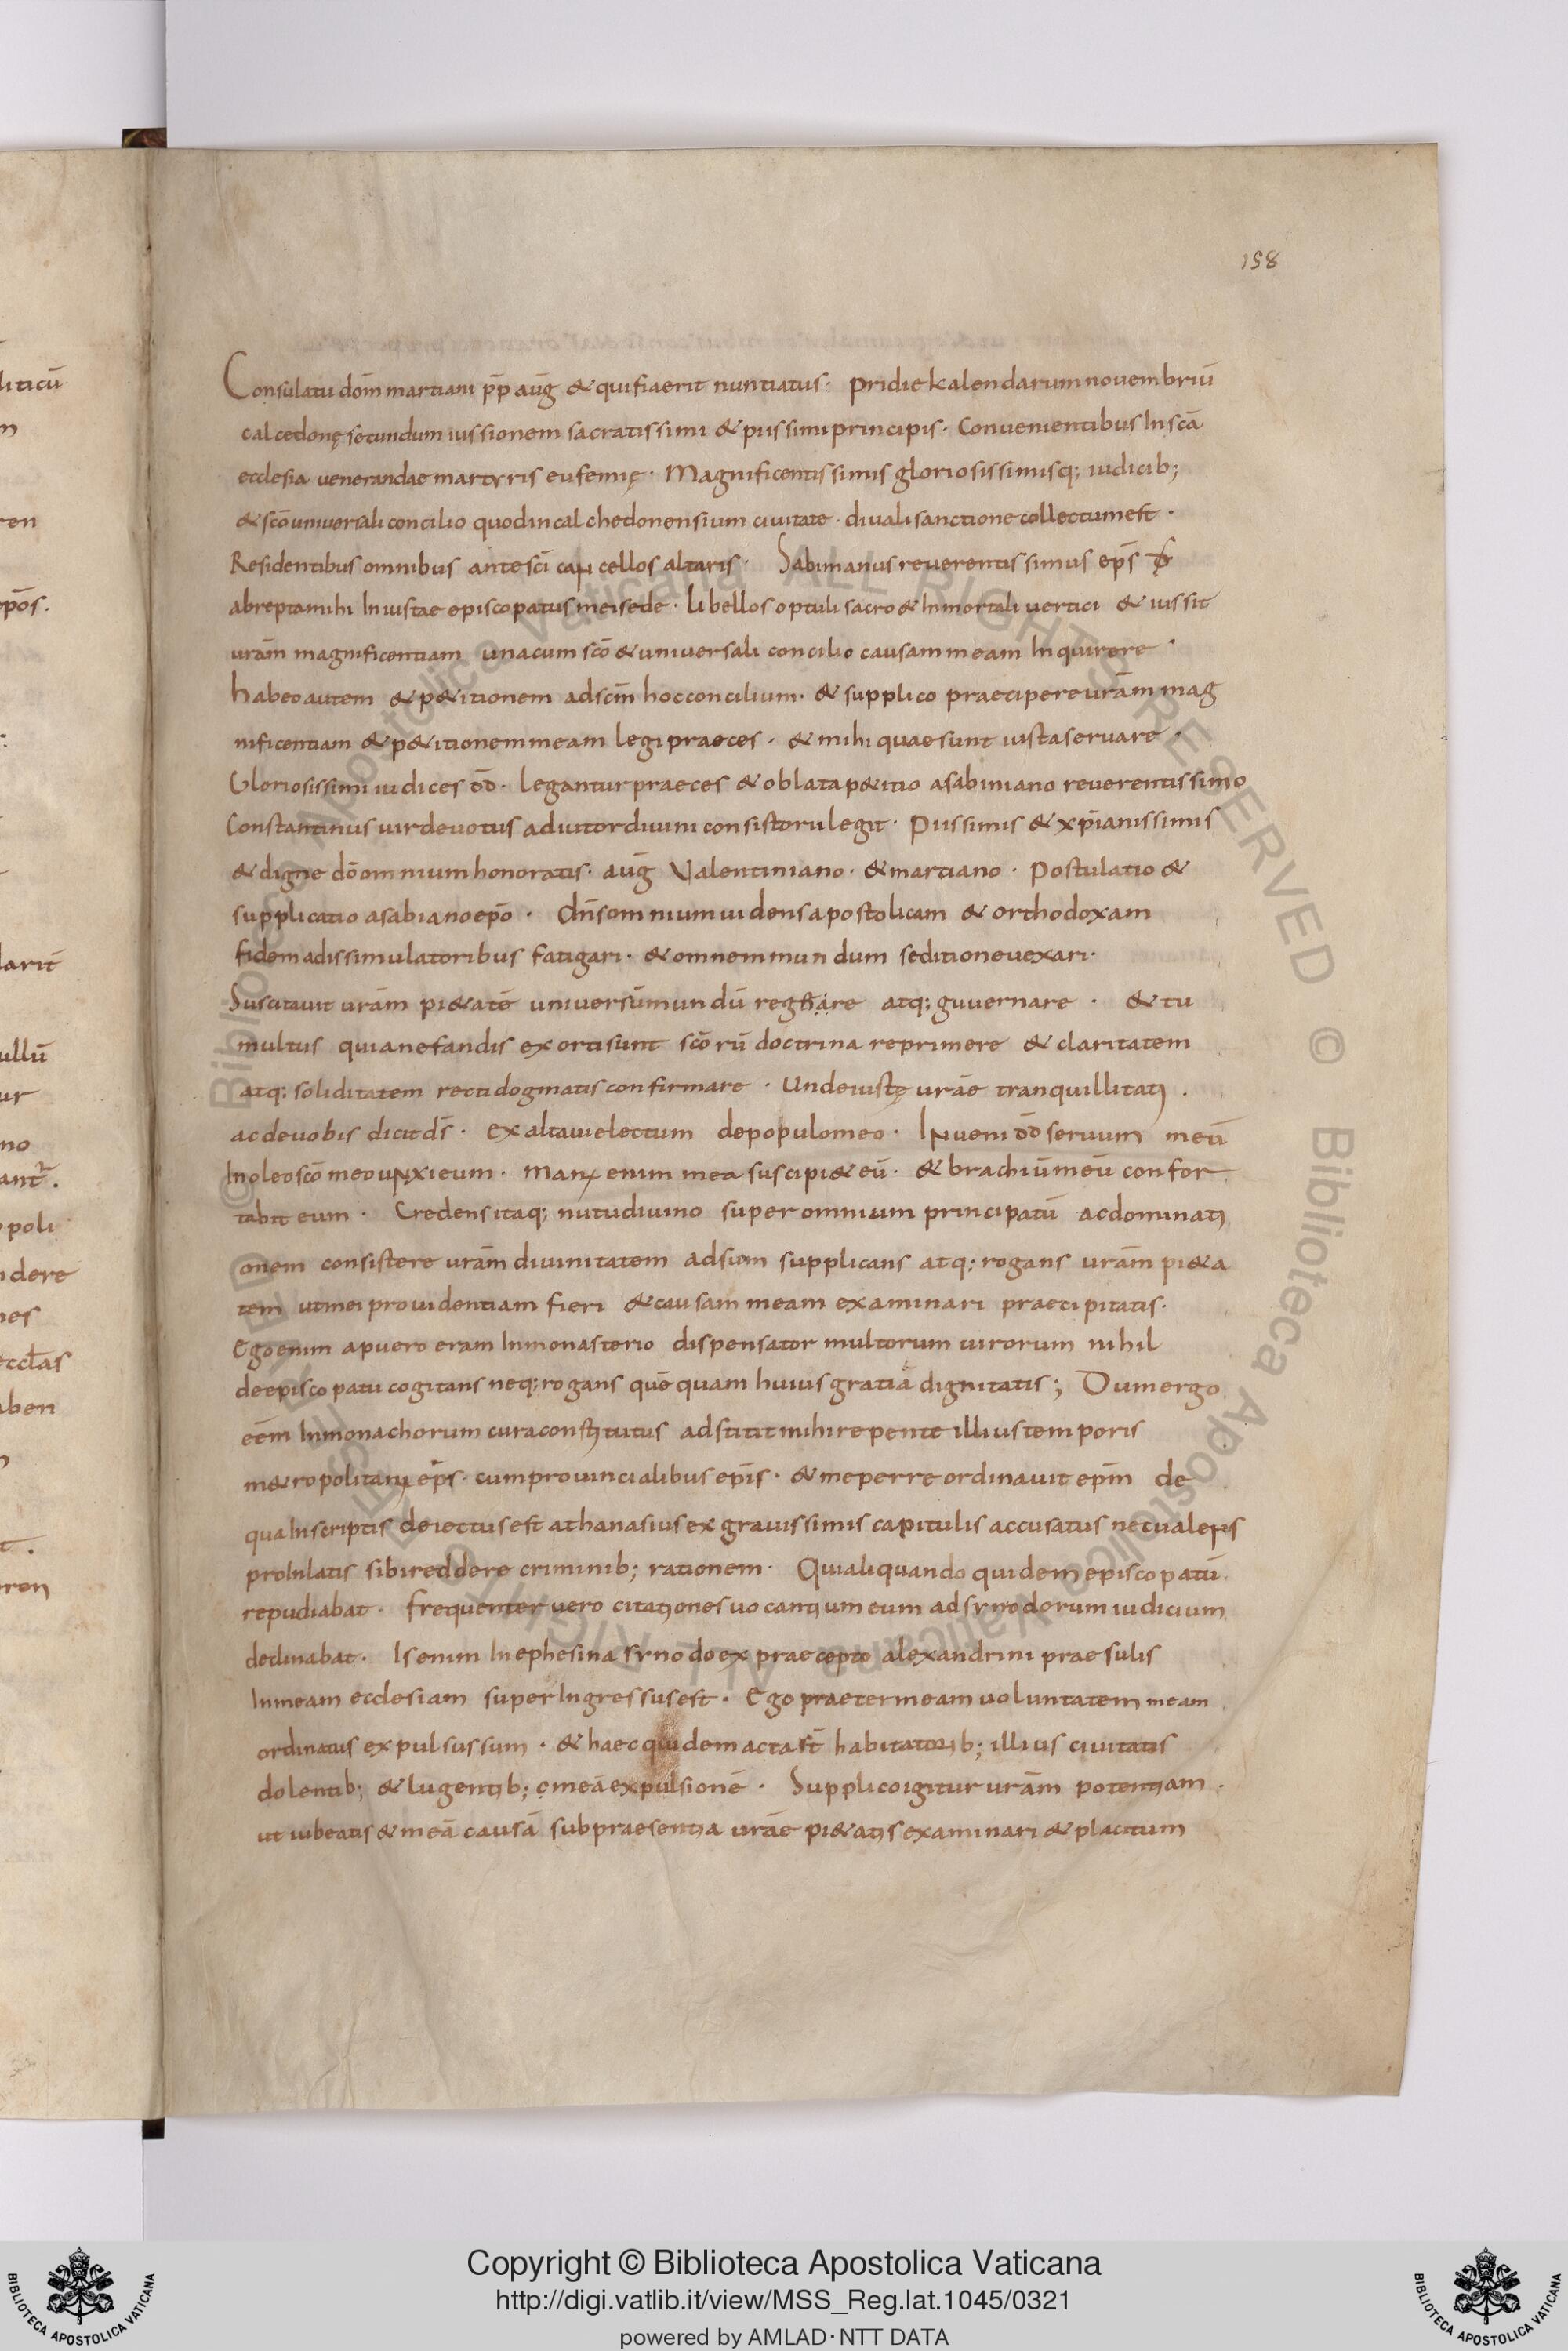 158
Consulatu dom̄ martiani p̄p̄ aug̅ & qui fiaerit nuntiatus· pridie kalendarum novembriū
calcedonę secundum iussionem sacratissimi & piissimi principis· Convenientibus In scā
ecclesia venerandae martyris eufemię· Magnificentissimis gloriosissimisq; iudicib;
& scō universali concilio quod in calchedonensium civitate· divali sanctione collectum est·
Residentibus omnibus ante scī cancellos altaris· Sabinianus reverentissimus ep̄s
abrepta mihi Iniustae episcopatus mei sede· Libellos optuli sacro & Inmortali vertici & iussit
urām magnificentiam una cum scō & universali concilio causam meam Inquirere·
habeo autem & p&itionem ad scm̄ hoc concilium· & supplico praecipere urām mag
nificentiam & p&itionem meam legi praeces· & mihi quae sunt iusta servare·
Gloriosissimi iudices d̄d̄· legantur praeces & oblata p&itio a sabiniano reverentissimo
Constantinus vir devotus adiutor divini consistorii legit· Piissimis & xp̄ianissimis
& digne dō omnium honoratis· aug̅ Valentiniano· & martiano· Postulatio &
supplicatio a sabiano epō· Dn̄s omnium videns apostolicam & orthodoxam
fidem a dissimulatoribus fatigari· & omnem mundum seditione vexari·
Suscitavit urām pi&atē universū mundū regnare atq; guvernare· & tu
multus qui a nefandis exorti sunt scō rū doctrina reprimere & claritatem
atq; soliditatem recti dogmatis confirmare· Unde iustę urāe tranquillitati·
ac de vobis dicit ds̄· Exaltavi electum de populo meo· Inveni d̄d̄ servum meū
In oleo scō meo unxi eum· Manus enim mea suscipi& eū· & brachiū meū confor
tabit eum· Credens itaq; nutu divino super omnium principatū ac dominati
onem consistere urām divinitatem adsum supplicans atq; rogans urām pi&a
tem ut mei providentiam fieri & causam meam examinari praecipitatis·
Ego enim a puero eram In monasterio dispensator multorum virorum nihil
de episcopatu cogitans neq; rogans quē quam huius gratiā dignitatis; Dum ergo
eēm In monachorum cura constitutus adstitit mihi repente illius temporis
m&ropolitanus ep̄s· cum provincialibus ep̄is· & me perre ordinavit ep̄m de
qua In scriptis deiectus est athanasius ex gravissimis capitulis accusatus nec valens
pro Inlatis sibi reddere criminib; rationem· Qui aliquando quidem episcopatū
repudiabat· frequenter vero citationes vocantium eum ad synodorum iudicium
declinabat· Is enim In ephesina synodo ex praecepto alexandrini praesulis
In meam ecclesiam super Ingressus est· Ego praeter meam voluntatem meam
ordinatus expulsus sum· & haec quidem acta st̄ habitatorib; illius civitatis
dolentib; & lugentib; o meā expulsionē· Supplico igitur urām potentiam·
ut iubeatis & meā causā sub praesentia urāe pi&atis examinari & placitum
Copyright © Biblioteca Apostolica Vaticana
http://digi.vatlib.it/view/MSS_Reg.lat.1045/0321
powered by AMLAD·NTT DATA